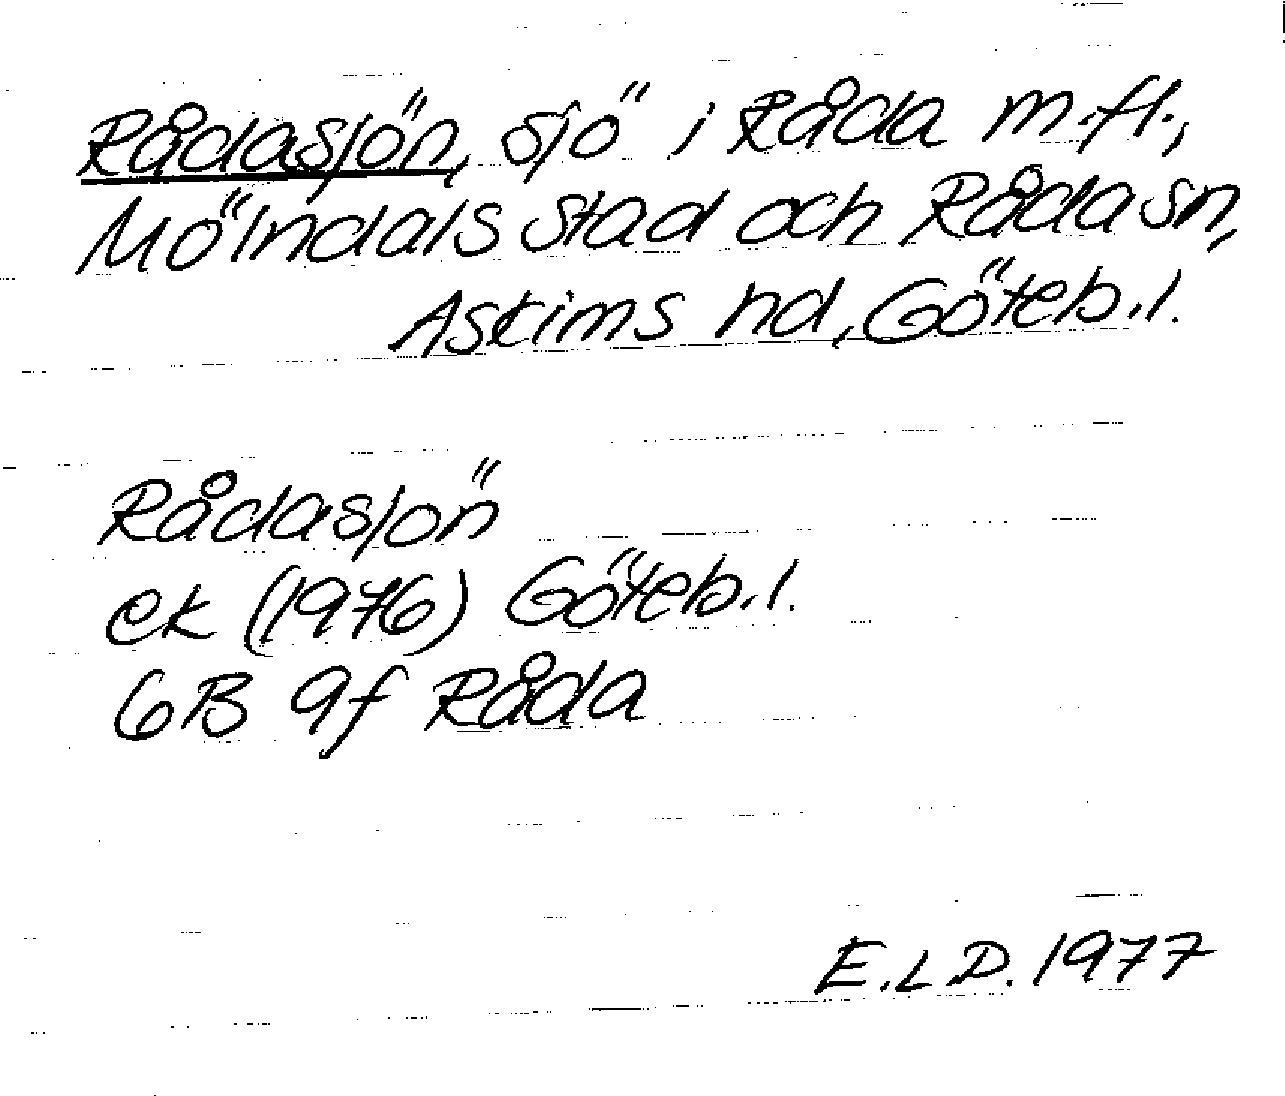 Rådasjön, sjö i Råda m.fl.,
Mölndals stad och Råda sn,
Askims hd, Göteb.l.
Rådasjön
ek (1976) Göteb.l.
6B 9f Råda
E.L.D. 1977